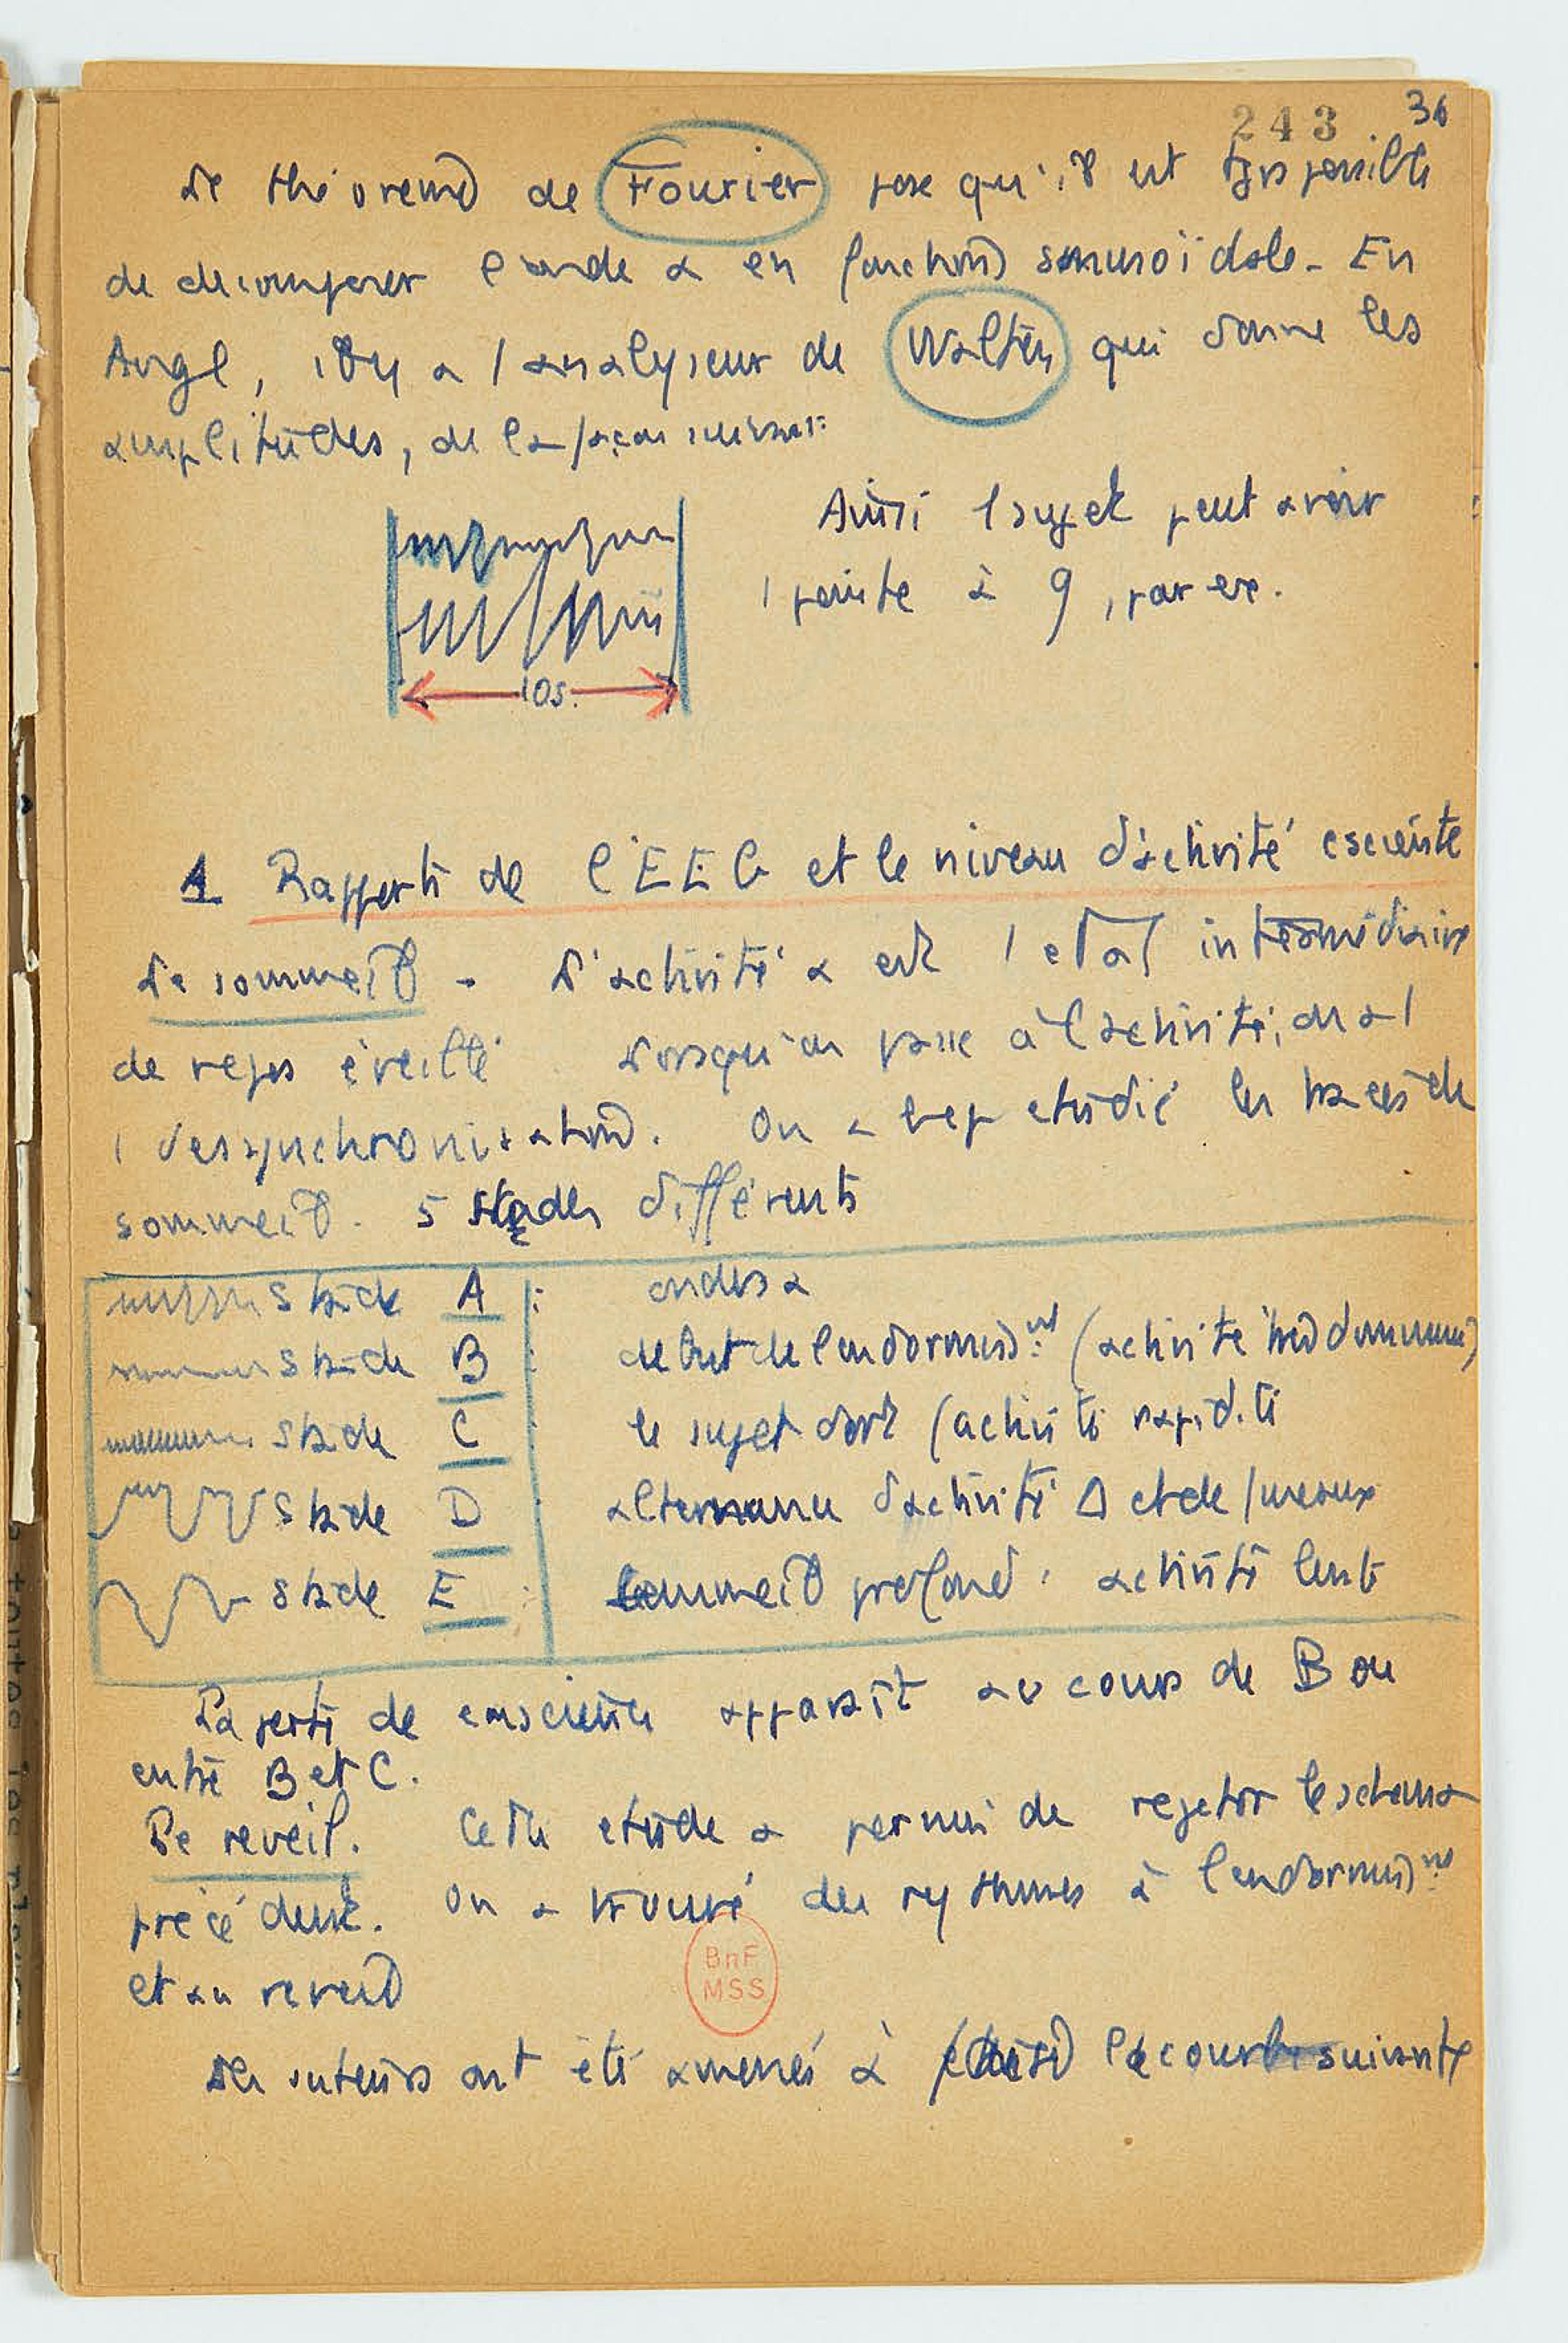 243 36
Le théorème de Fourier pose qu'il est tjrs possible
de décomposer l'onde α en fonction sinusoïdale. En
Angl, il y a 1 analyseur de Walter qui donne les
amplitudes, de la façon suivante:
Ainsi 1 sujet peut avoir
1 pointe à 9, par ex.
10s.
1 Rapports de l'EEG et le niveau d'activité csciente
Le sommeil - L'activité α est 1 état intermédiaire
de repos éveillé. Lorsqu'on passe à l'activité, on a 1
1 desynchronisation. On a bcp étudié les tracés de
sommeil. 5 stades différents
stade A : ondes α
stade B : début de l'endormisst (activité
stade C : le sujet dort (activité rapidité
stade D : alternance d'activité Δ et de fuseaux
stade E : sommeil profond : activité lente
La perte de conscience apparaît au cours de B ou
entre B et C.
Le reveil. Cette étude a permis de rejeter le schéma
précédent. On a trouvé des rythmes à l'endormisst
et au reveil
BnF
MSS
Des auteurs ont été amenés à la courbe suivante